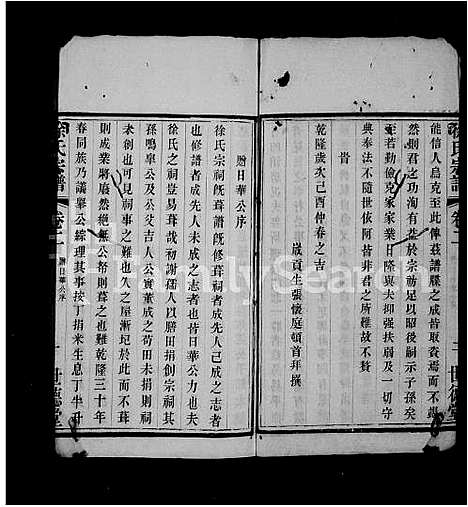 能信人烏克至此俾茲譜牒之成皆取資焉而不竭
然則君之功洵有益於宗祊足以昭後嗣示子孫矣
至若勤儉克家家業日隆與夫抑強扶弱及一切
典奉法不隨世依阿皆非君之所難故不贅
旹
乾隆歲次己酉仲春之吉
歲貢生張懷庭頓首拜撰
贈日華公序
徐氏宗祠既葺譜既修葺祠者成先人己成之志者
也修譜者成先人未成之志者也皆日華公力也夫
徐氏之祠豈易葺哉初謝孺人以贍田捐創宗祠其
孫鳴皐公及公父吉人公實董成之苟田未捐則祠
未創也可見祠事之難也久之屋漸圮於此而不葺
則成業將廢然絶無公帑則葺之也難乾隆三十年
春同族乃議擧公綜理其事按丁捐米生息丁半升
徐氏宗譜
卷二
贈日華公序
世德堂
FamilySearch